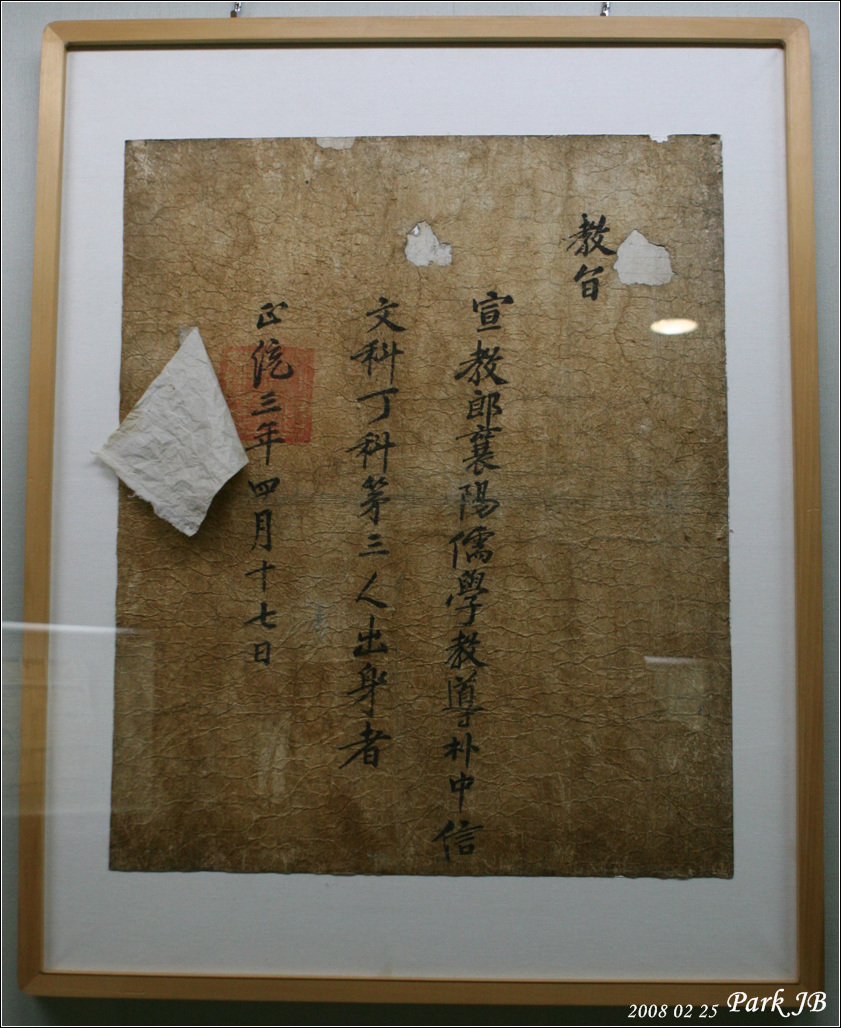 教旨
宣教郎襄陽儒學教導朴中信
文科丁科第三人出身者
正统三年四月十七日
2008 02 25 Park JB